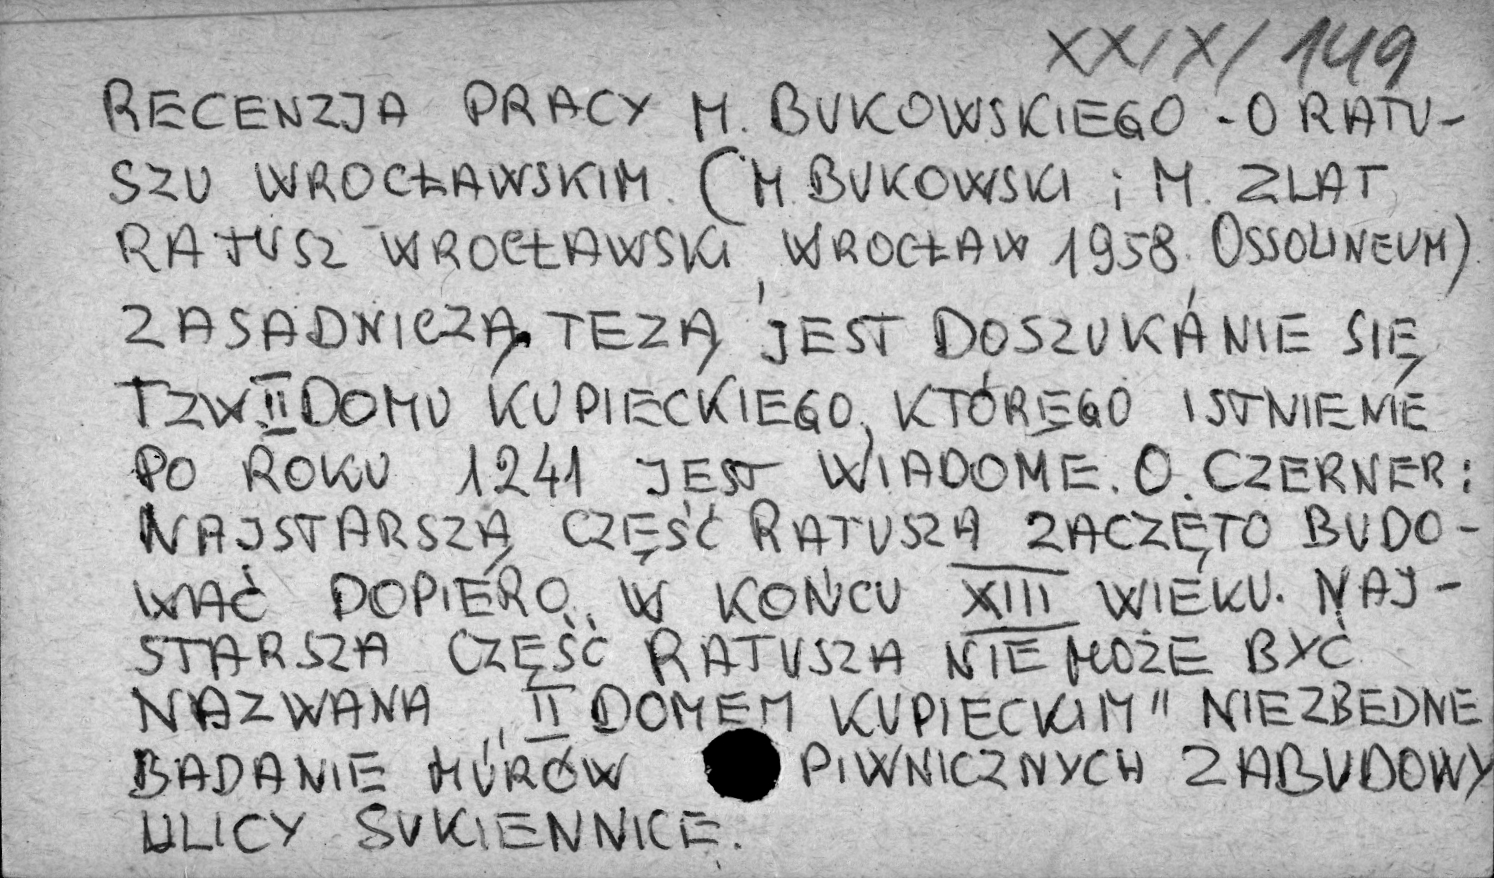 XXIX/149
RECENZJA PRACY M. BUKOWSKIEGO - O RATU-
SZU WROCŁAWSKIM. (M. BUKOWSKI i M. ZLAT
RATUSZ WROCŁAWSKI, WROCŁAW 1958. OSSOLINEUM)
ZASADNICZĄ TEZĄ JEST DOSZUKANIE SIĘ
TZW. II DOMU KUPIECKIEGO, KTÓREGO ISTNIENIE
PO ROKU 1241 JEST WIADOME. O. CZERNER:
NAJSTARSZĄ CZĘŚĆ RATUSZA ZACZĘTO BUDO-
WAĆ DOPIERO W KOŃCU XIII WIEKU. NAJ-
STARSZA CZĘŚĆ RATUSZA NIE MOŻE BYĆ
NAZWANA „II DOMEM KUPIECKIM" NIEZBEDNE
BADANIE MURÓW PIWNICZNYCH ZABUDOWY
ULICY SUKIENNICE.